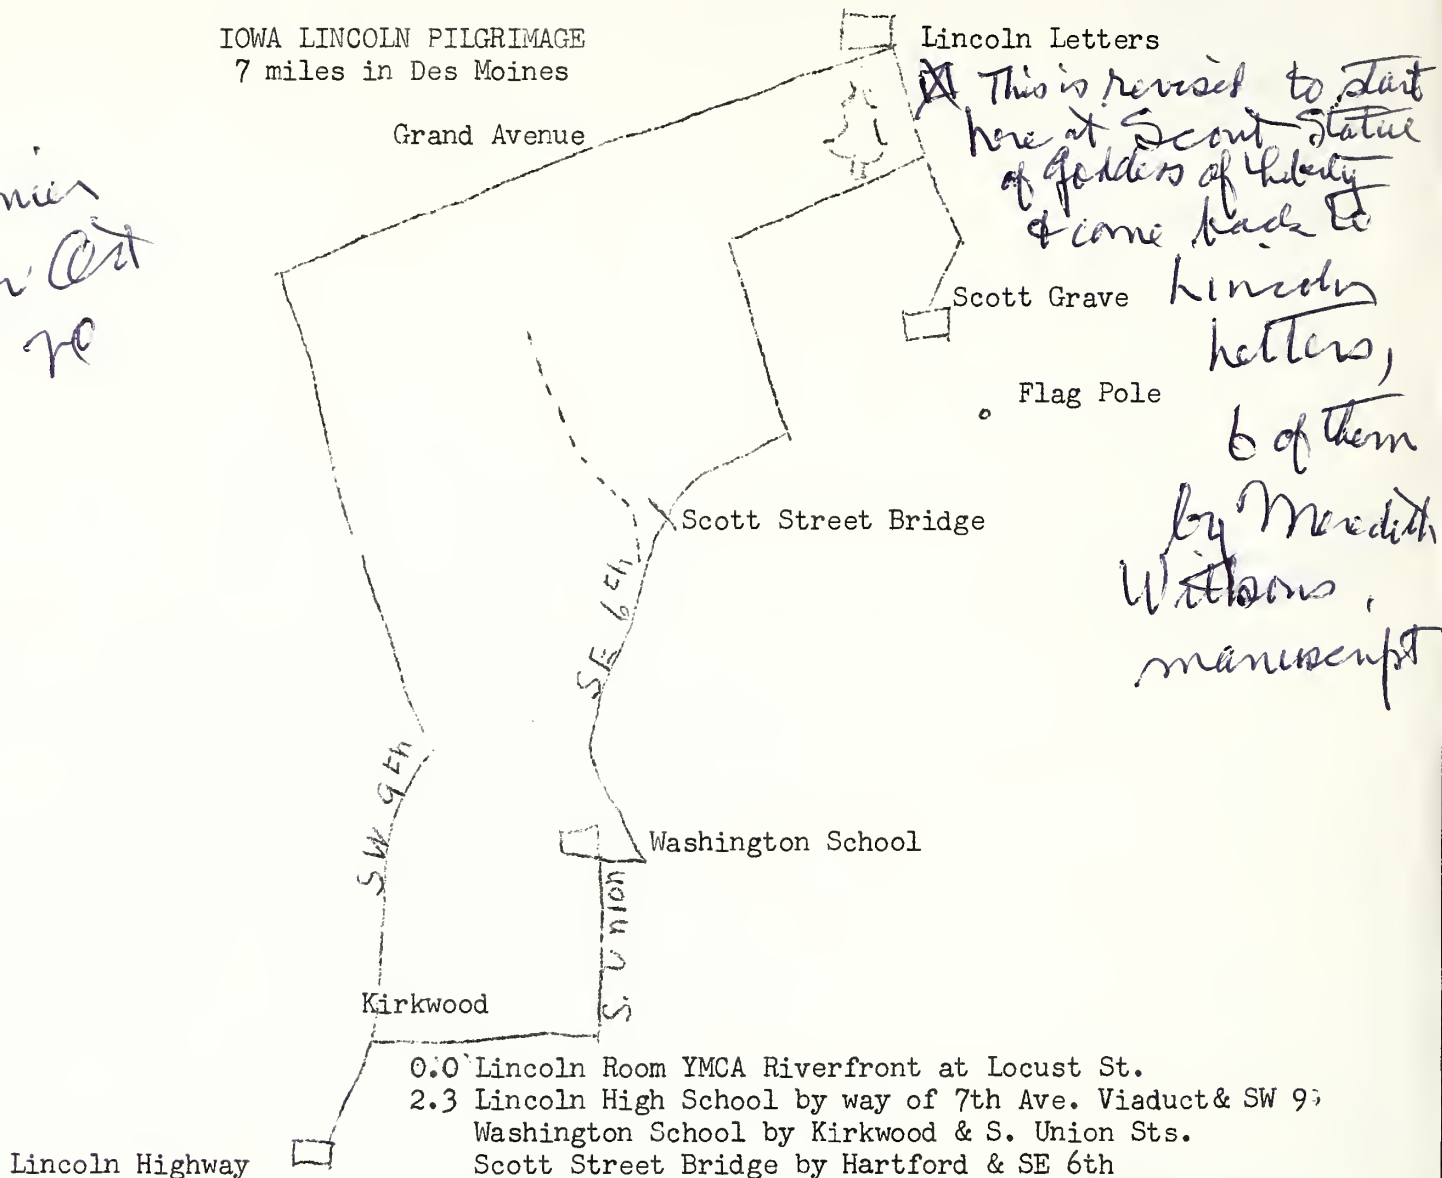 IOWA LINCOLN PILGRIMAGE
7 miles in Des Moines
Lincoln Letters
This is revised to start
here at Scout Statue
of Goddess of Liberty
& come back to
Lincoln
Letters,
6 of them
by Meredith
Willsons,
manuscript
Grand Avenue
Scott Grave
Flag Pole
Scott Street Bridge
SE 6th
SW 9th
Washington School
S. Union
Kirkwood
0.0 Lincoln Room YMCA Riverfront at Locust St.
2.3 Lincoln High School by way of 7th Ave. Viaduct & SW 9
Washington School by Kirkwood & S. Union Sts.
Scott Street Bridge by Hartford & SE 6th
Lincoln Highway